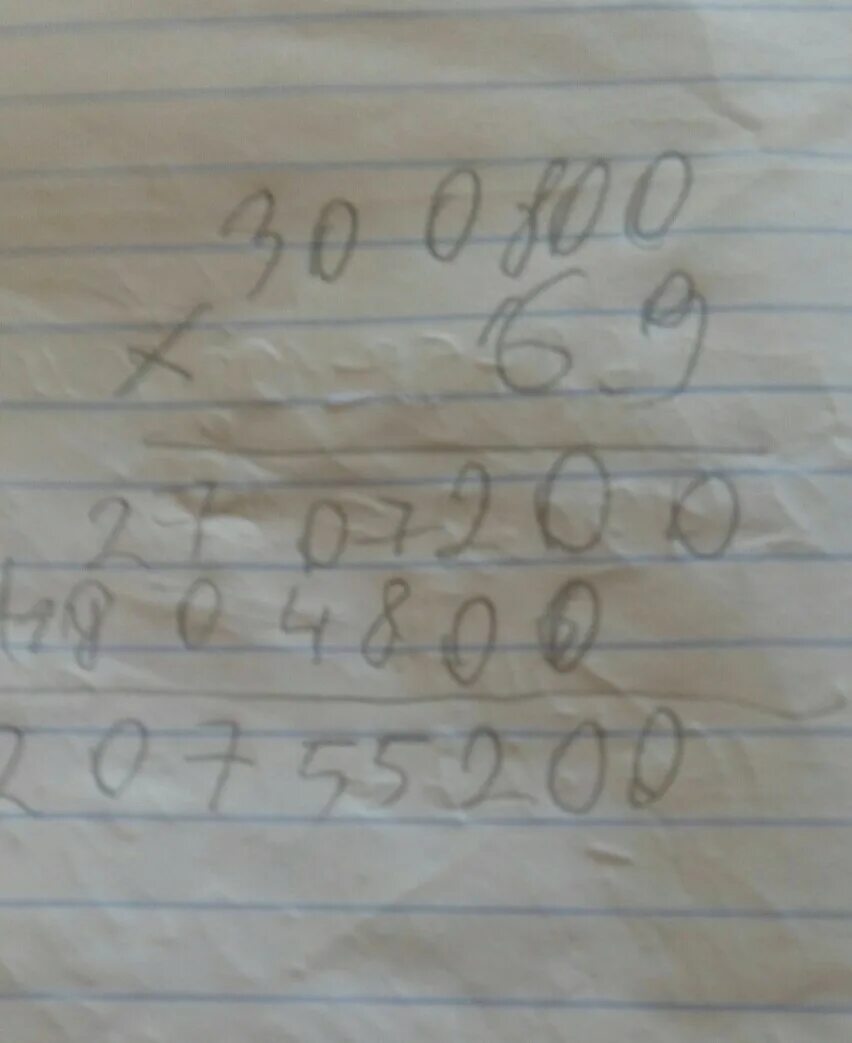 300800
× 69
2707200
1804800
20755200